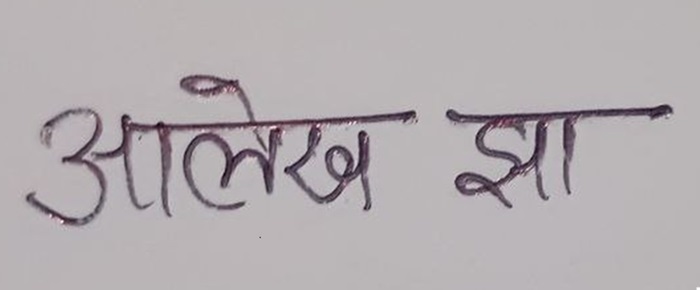 आलेख झा